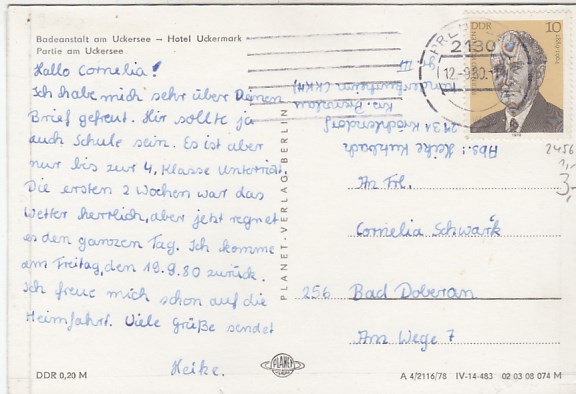 Badeanstalt am Uckersee — Hotel Uckermark
Partie am Uckersee
Hallo Cornelia!
Ich habe mich sehr über Deinen
Brief gefreut. Hir sollte ja
auch Schule sein. Es ist aber
nur bis zur 4. Klasse Unterricht.
Die ersten 2 Wochen war das
Wetter herrlich, aber jetzt regnet
es den ganzen Tag. Ich komme
am Freitag, den 19.9.80 zurück.
Ich freue mich schon auf die
Heimfahrt. Viele Grüße sendet
Heike.
DDR 0,20 M
PLANET-VERLAG BERLIN
PLANET
A 4/2116/78 IV-14-483 02 03 08 074 M
DDR
10
2130
12.-9.80.-
Abs.: Heike
2131 Kröchlendorf
Krs. Prenzlau
III
An Frl.
Cornelia Schwark
256 Bad Doberan
Am Wege 7
2456
1,-
3,-